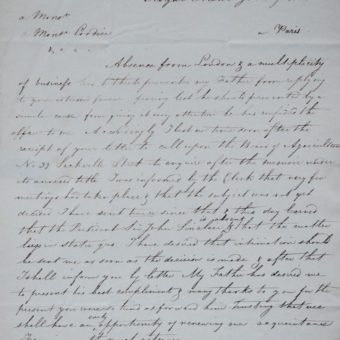 a Monsr
a Monsr Cordier à Paris
Absence from London & a multiplicity
of business has hitherto prevented my Father from replying
to your esteemed favor, fearing lest he should be prevented by a
similar cause from giving it any attention he has confided the
affair to me. Accordingly I took an occasion after the
receipt of your letter to call upon the Board of Agriculture
No. 32 Sackville Street to enquire after the memoir when
its answered to the I was informed by the Clerk that very few
meetings had taken place & that the subject was not yet
decided I have sent twice since that & this day learned
that the President Sir John Sinclair is absent & that the matter
lays in statu quo. I have desired that intimation should
be sent me as soon as the decision is made & after that
I shall inform you by letter My Father has desired me
to present his best compliments & many thanks to you for the
present you were so kind as forward him Trusting that we
shall have an early opportunity of renewing our acquaintance